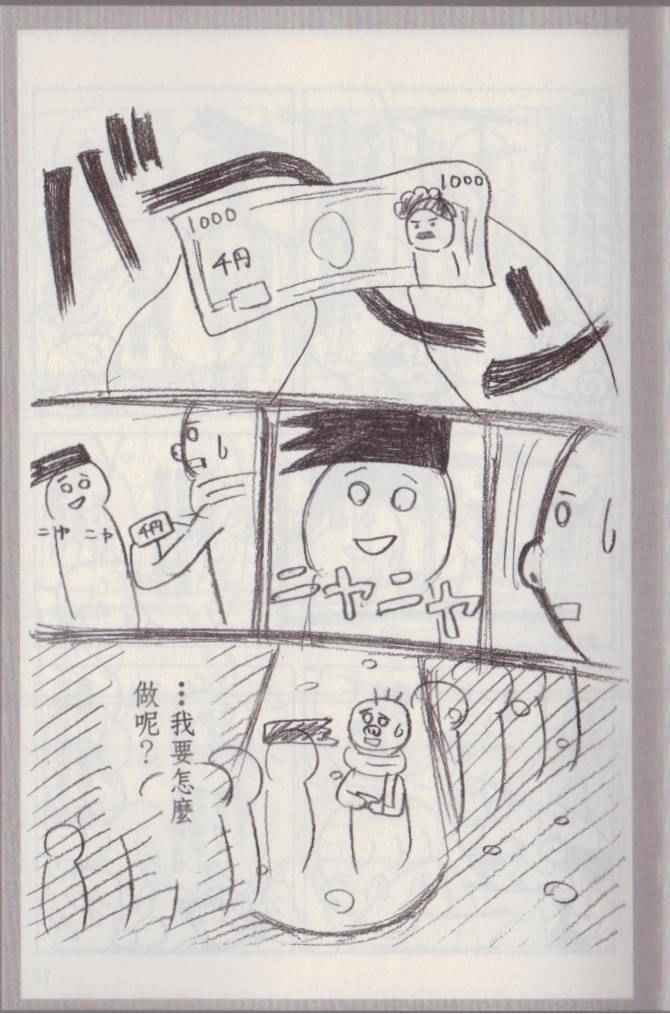 バーン
1000
1000
千円
ニヤニヤ
ニヤ ニヤ
千円
…我要怎麼
做呢？